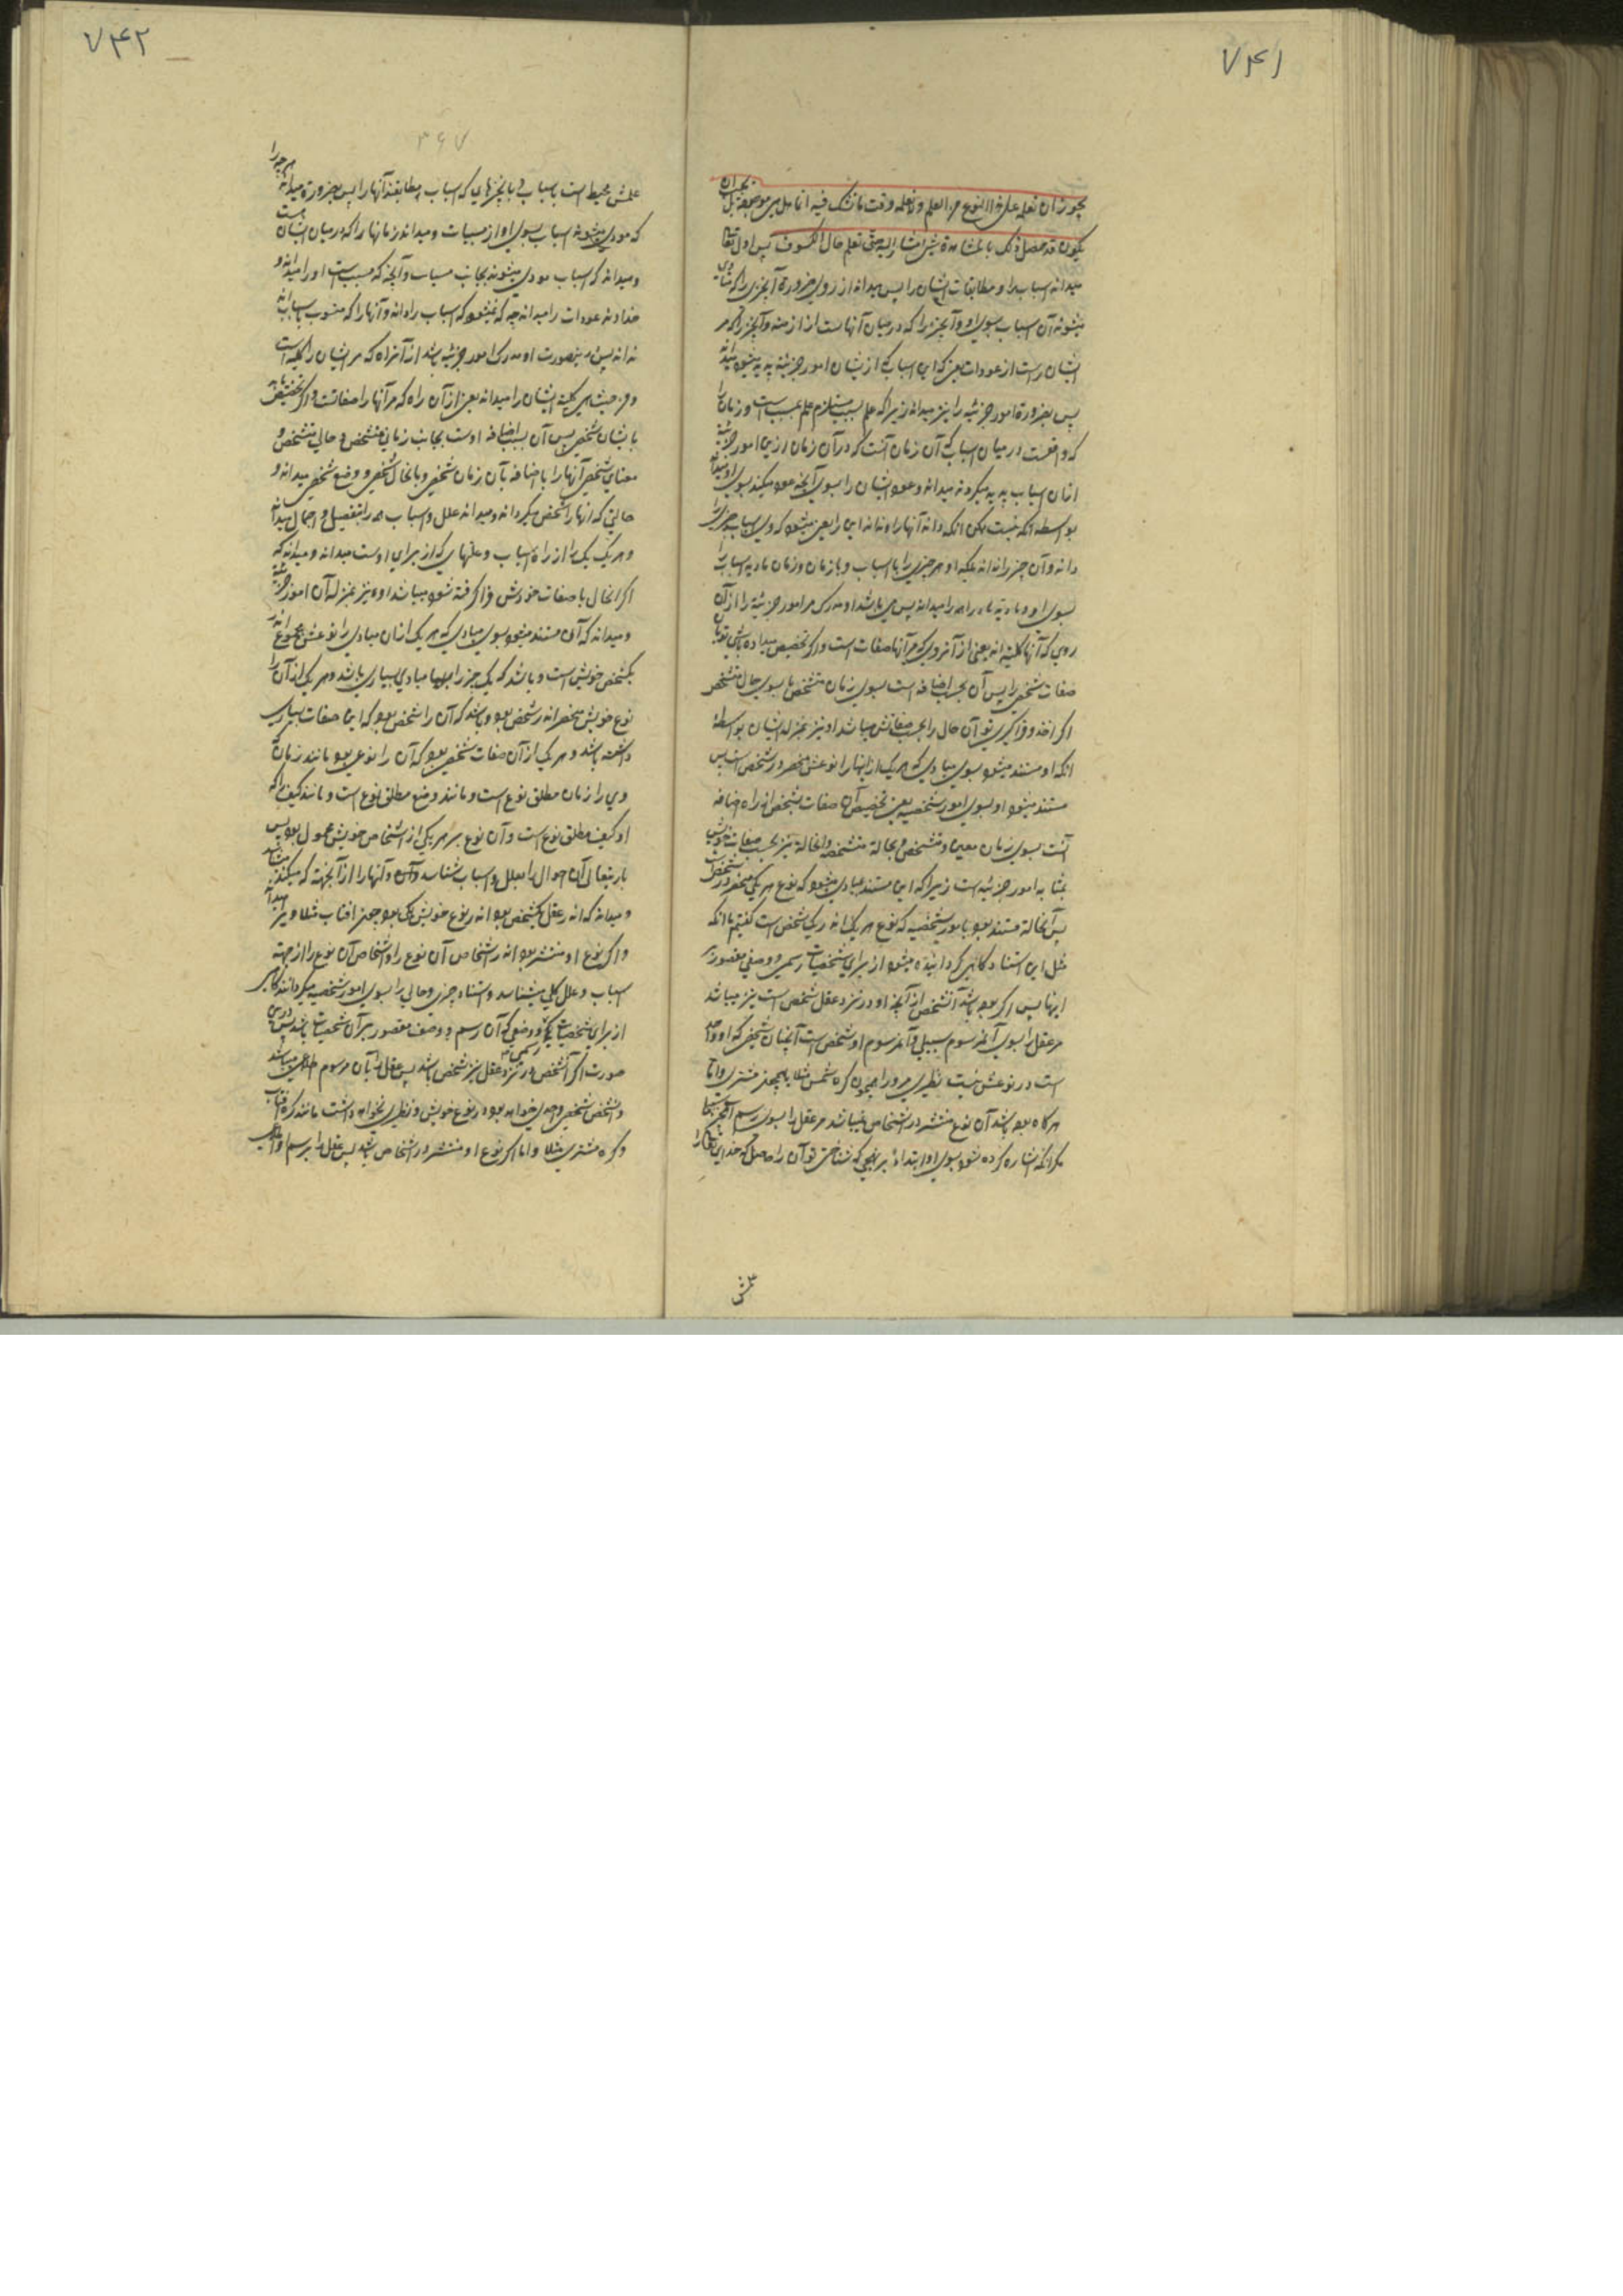 ۷۴۱
یجوز ان تعلمه علی هذا النوع من العلم ولا تعلمه وقت ما تشک فیه انها هل هی موجودة بل یجب ان
یکون قد حصل ذلک بالمشاهدة شیء مشار الیه حتی تعلم حال الکسوف پس اول تعالی
میداند اسباب را و مطابقات ایشان را پس میداند از روی ضرورة آنچیزی را که متادی
میشوند آن اسباب بسوی او و آنچیز را که در میان آنهاست از ازمنه و آنچیز را که مر
ایشان راست از عودات یعنی که این اسباب که از ایشان امور جزئیه پدید میشود میداند
پس بضرورة امور جزئیه را نیز میداند زیرا که علم بسبب مستلزم علم بمسبب است و زمان را
که واقعست در میان اسباب که آن زمان آنست که در آن زمان از این امور جزئیه
از آن اسباب پدید میگردند میداند و عود ایشان را بسوی آنچه عود میکند بسوی او میداند
بواسطه آنکه نیست ممکن آنکه داند آنها را و نداند این را یعنی نمیشود که وی اسباب چیزی را
داند و آن چیز را نداند بلکه او هر چیزی را با اسباب و با زمان و زمان تادیه اسباب را
بسوی او و تادیه را همه را میداند پس می باشد او مدرک مر امور جزئیه را از آن
روی که آنها کلیه اند یعنی از آن روی که مر آنها صفات است و اگر تخصیص میداده باشی تو بآن
صفات شخصی را پس آن بحسب اضافه است بسوی زمان متشخص یا بسوی حال متشخص
اگر اخذ و فراگیری تو آن حال را بحسب صفاتش میباشد او نیز بمنزله ایشان بواسطه
آنکه او مستند میشود بسوی مبادی که هر یک از اینها را نوعش منحصر در شخص است پس
مستند میشود او بسوی امور شخصیه یعنی تخصیص آن صفات بشخص از راه اضافه
آنست بسوی زمان معین و متشخص و بحالة متشخصه و انحالة نیز بحسب صفات خویش
بمثابه امور جزئیه است زیرا که این مستند بمبادی میشود که نوع هر یکی منحصر در شخص است
پس آنحالة مستند بود بامور شخصیه که نوع هر یکی از آنها در یک شخص است گفتیم ما آنکه
مثل این استناد گاهی گردانیده میشود از برای شخصیات رسمی و وصفی مقصور بر
اینها پس اگر بوده باشد آن شخص از آنچه او در نزد عقل شخص است نیز میباشد
مر عقل را بسوی آن مرسوم سبیلی و آن مرسوم او شخص است آنچنان شخصی که او واحد
است در نوعش نیست نظیری مر او را همچون کره شمس مثلا یا همچو مشتری و اما
هرگاه بوده باشد آن نوع منتشر در اشخاص نمیباشد مر عقل را بسوی رسم آنچیز سبیل
مگر آنکه اشاره کرده شود بسوی او ابتداءً بر نهجی که شناختی تو آن را حاصل که خدای تعالی را
۷۴۲
۳۶۷
علمش محیط است باسباب و بآنچیزهایی که اسباب مطابقند آنها را پس بضرورة میداند هر چه را
که مودی میشوند اسباب بسوی او از مسببات و میداند زمانها را که در میان ایشان است
و میداند که اسباب مودی میشوند بجانب مسببات و آنچه که مسبب است او را میداند و
خداوند عودات را میداند چه که نمیشود که اسباب را داند و آنها را که منسوب باسباب اند
نداند پس در ینصورت او مدرک امور جزئیه باشد از آنراه که مر ایشان را کلیه است
و من حیث هی کلیة ایشان را میداند یعنی از آن راه که مر آنها را صفاتست و اگر تخصیص یابد
بایشان شخص پس آن بسبب اضافه اوست بجانب زمانی متشخص و حالی متشخص و
معنای شخصی آنها را باضافه بآن زمان شخصی و بآنحال شخصی و وضع شخصی میداند و
حالتی که آنها را شخص میگرداند و میداند علل و اسباب همه را بتفصیل و اجمال میداند
و هر یک یک را از راه اسباب و علتهایی که از برای اوست میداند و میداند که
اگر انحال با صفات خودش فراگرفته شود میباشد او نیز بمنزله آن امور جزئیه
و میداند که آن مستند میشود بسوی مبادی که هر یک از آن مبادی را نوعش مجموع اند در
یک شخص خویش است و باشد که یک چیز را مبادی بسیاری باشد و هر یکی از آن را
نوع خویش منحصر اند در شخص بود و باشد که آن را شخص بود که این صفات بسیاری
داشته باشد و هر یکی از آن صفات شخصی بود که آن را نوعی بود مانند زمان که
وی را زمان مطلق نوع است و مانند وضع مطلق نوع است و مانند کیف را که
او کیف مطلق نوع است و آن نوع بر هر یکی از اشخاص خویش محمول بود پس
باریتعالی آن احوال را بعلل و اسباب شناسد و آنها را از آنجهت که میکنند میشناسد
و میداند که اند در عقل یکشخص بود اند در نوع خویش یک بود چون آفتاب مثلا و نیز میداند
و اگر نوع او منتشر بود اند در اشخاص آن نوع را و اشخاص آن نوع را از جهة
اسباب و علل کلی میشناسد و استناد چیزی و حالی را بسوی امور شخصیه میگردانند گاهی
از برای شخصیات رسمی و وصفی که آن رسم و وصف مقصور بر آن شخصیات باشد پس در این
صورت اگر آن شخص در نزد عقل نیز شخص باشد پس عقل را بآن مرسوم راهی میباشد
و آن شخص شخصی واحدی خواهد بود در نوع خویش و نظیری نخواهد داشت مانند کره آفتاب
و کره مشتری مثلا و اما اگر نوع او منتشر در اشخاص باشد پس عقل را برسم او راهی